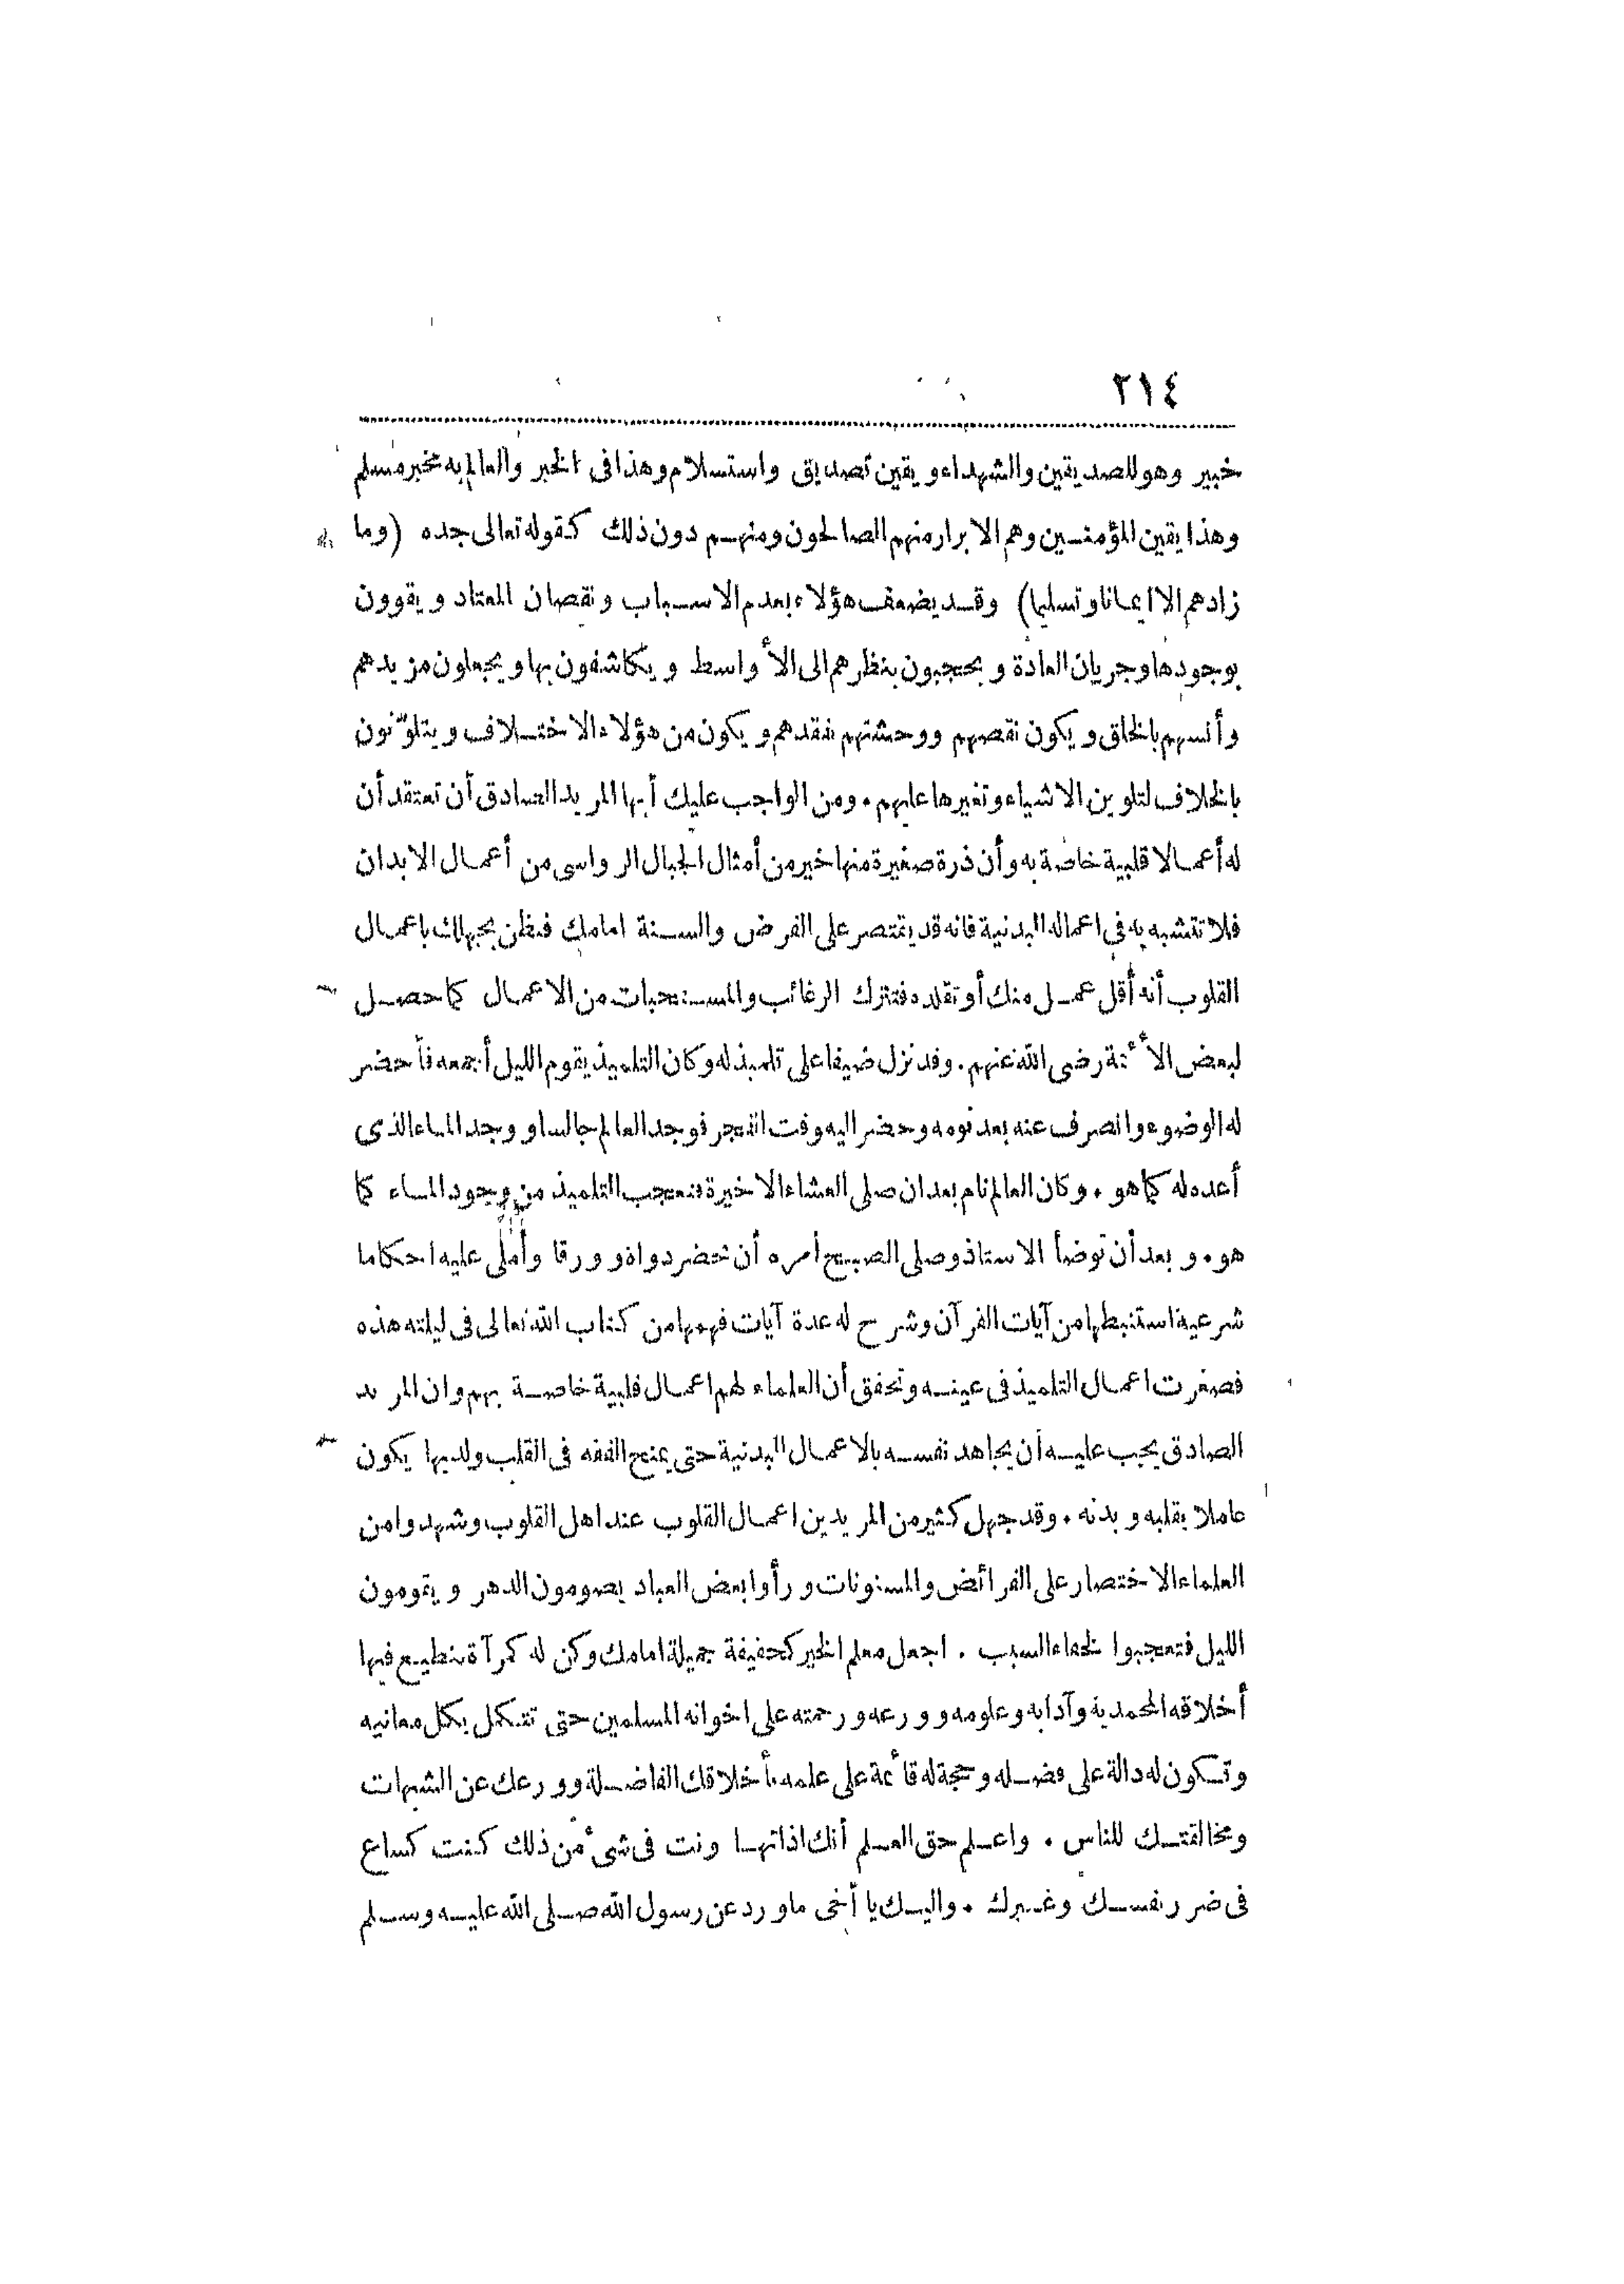 ٢١٤
خبير وهو للصديقين والشهداء ويقين تصديق واستسلام وهذا فى الخبر والعالم به مخبر مسلم
وهذا يقين المؤمنين وهم الابرار منهم الصالحون ومنهم دون ذلك كقوله تعالى جده (وما
زادهم الا ايمانا وتسليما) وقد يضعف هؤلاء بعدم الاسباب ونقصان المعتاد ويقوون
بوجودها وجريان العادة ويحتجبون بنظرهم الى الأواسط ويكاشفون بها ويجعلون مزيدهم
وأنسهم بالخلق ويكون نقصهم ووحشتهم بفقدهم ويكون من هؤلاء الاختلاف ويتلوّنون
بالخلاف لتلوين الاشياء وتغيرها عليهم . ومن الواجب عليك أيها المريد الصادق أن تعتقد أن
له أعمالا قلبية خاصة به وأن ذرة صغيرة منها خير من أمثال الجبال الرواسى من أعمال الابدان
فلا تتشبه به في اعماله البدنية فانه قد يقتصر على الفرض والسنة امامك فتظن بجهلك باعمال
القلوب أنه أقل عمل منك أو تقلده فتترك الرغائب والمستحبات من الاعمال كما حصل
لبعض الأئمة رضى الله عنهم . وقد نزل ضيفا على تلميذ له وكان التلميذ يقوم الليل أجمعه فأحضر
له الوضوء وانصرف عنه بعد نومه وحضر اليه وقت الفجر فوجد العالم جالسا ووجد الماء الذى
أعده له كما هو . وكان العالم نام بعد ان صلى العشاء الاخيرة فتعجب التلميذ من وجود الماء كما
هو . وبعد أن توضأ الاستاذ وصلى الصبح أمره أن تحضر دواة وورقا وأملى عليه احكاما
شرعية استنبطها من آيات القرآن وشرح له عدة آيات فهمها من كتاب الله تعالى فى ليلته هذه
فصغرت اعمال التلميذ فى عينه وتحقق أن العلماء لهم اعمال قلبية خاصة بهم وان المريد
الصادق يجب عليه أن يجاهد نفسه بالاعمال البدنية حتى يمنح الفقه فى القلب ولديها يكون
عاملا بقلبه وبدنه . وقد جهل كثير من المريدين اعمال القلوب عند اهل القلوب وشهدوا من
العلماء الاختصار على الفرائض والمسنونات ورأوا بعض العباد يصومون الدهر ويقومون
الليل فتعجبوا لخفاء السبب . اجعل معلم الخير كحقيقة جميلة امامك وكن له كمرآة تنطبع فيها
أخلاقه المحمدية وآدابه وعلومه وورعه ورحمته على اخوانه المسلمين حتى تتشكل بكل معانيه
وتكون له دالة على فضله وحجة له قائمة على علمه بأخلاقك الفاضلة وورعك عن الشبهات
ومخالقتك للناس . واعلم حق العلم أنك اذا تهاونت فى شئ من ذلك كنت كساع
فى ضرر نفسك وغيرك . واليك يا أخى ما ورد عن رسول الله صلى الله عليه وسلم